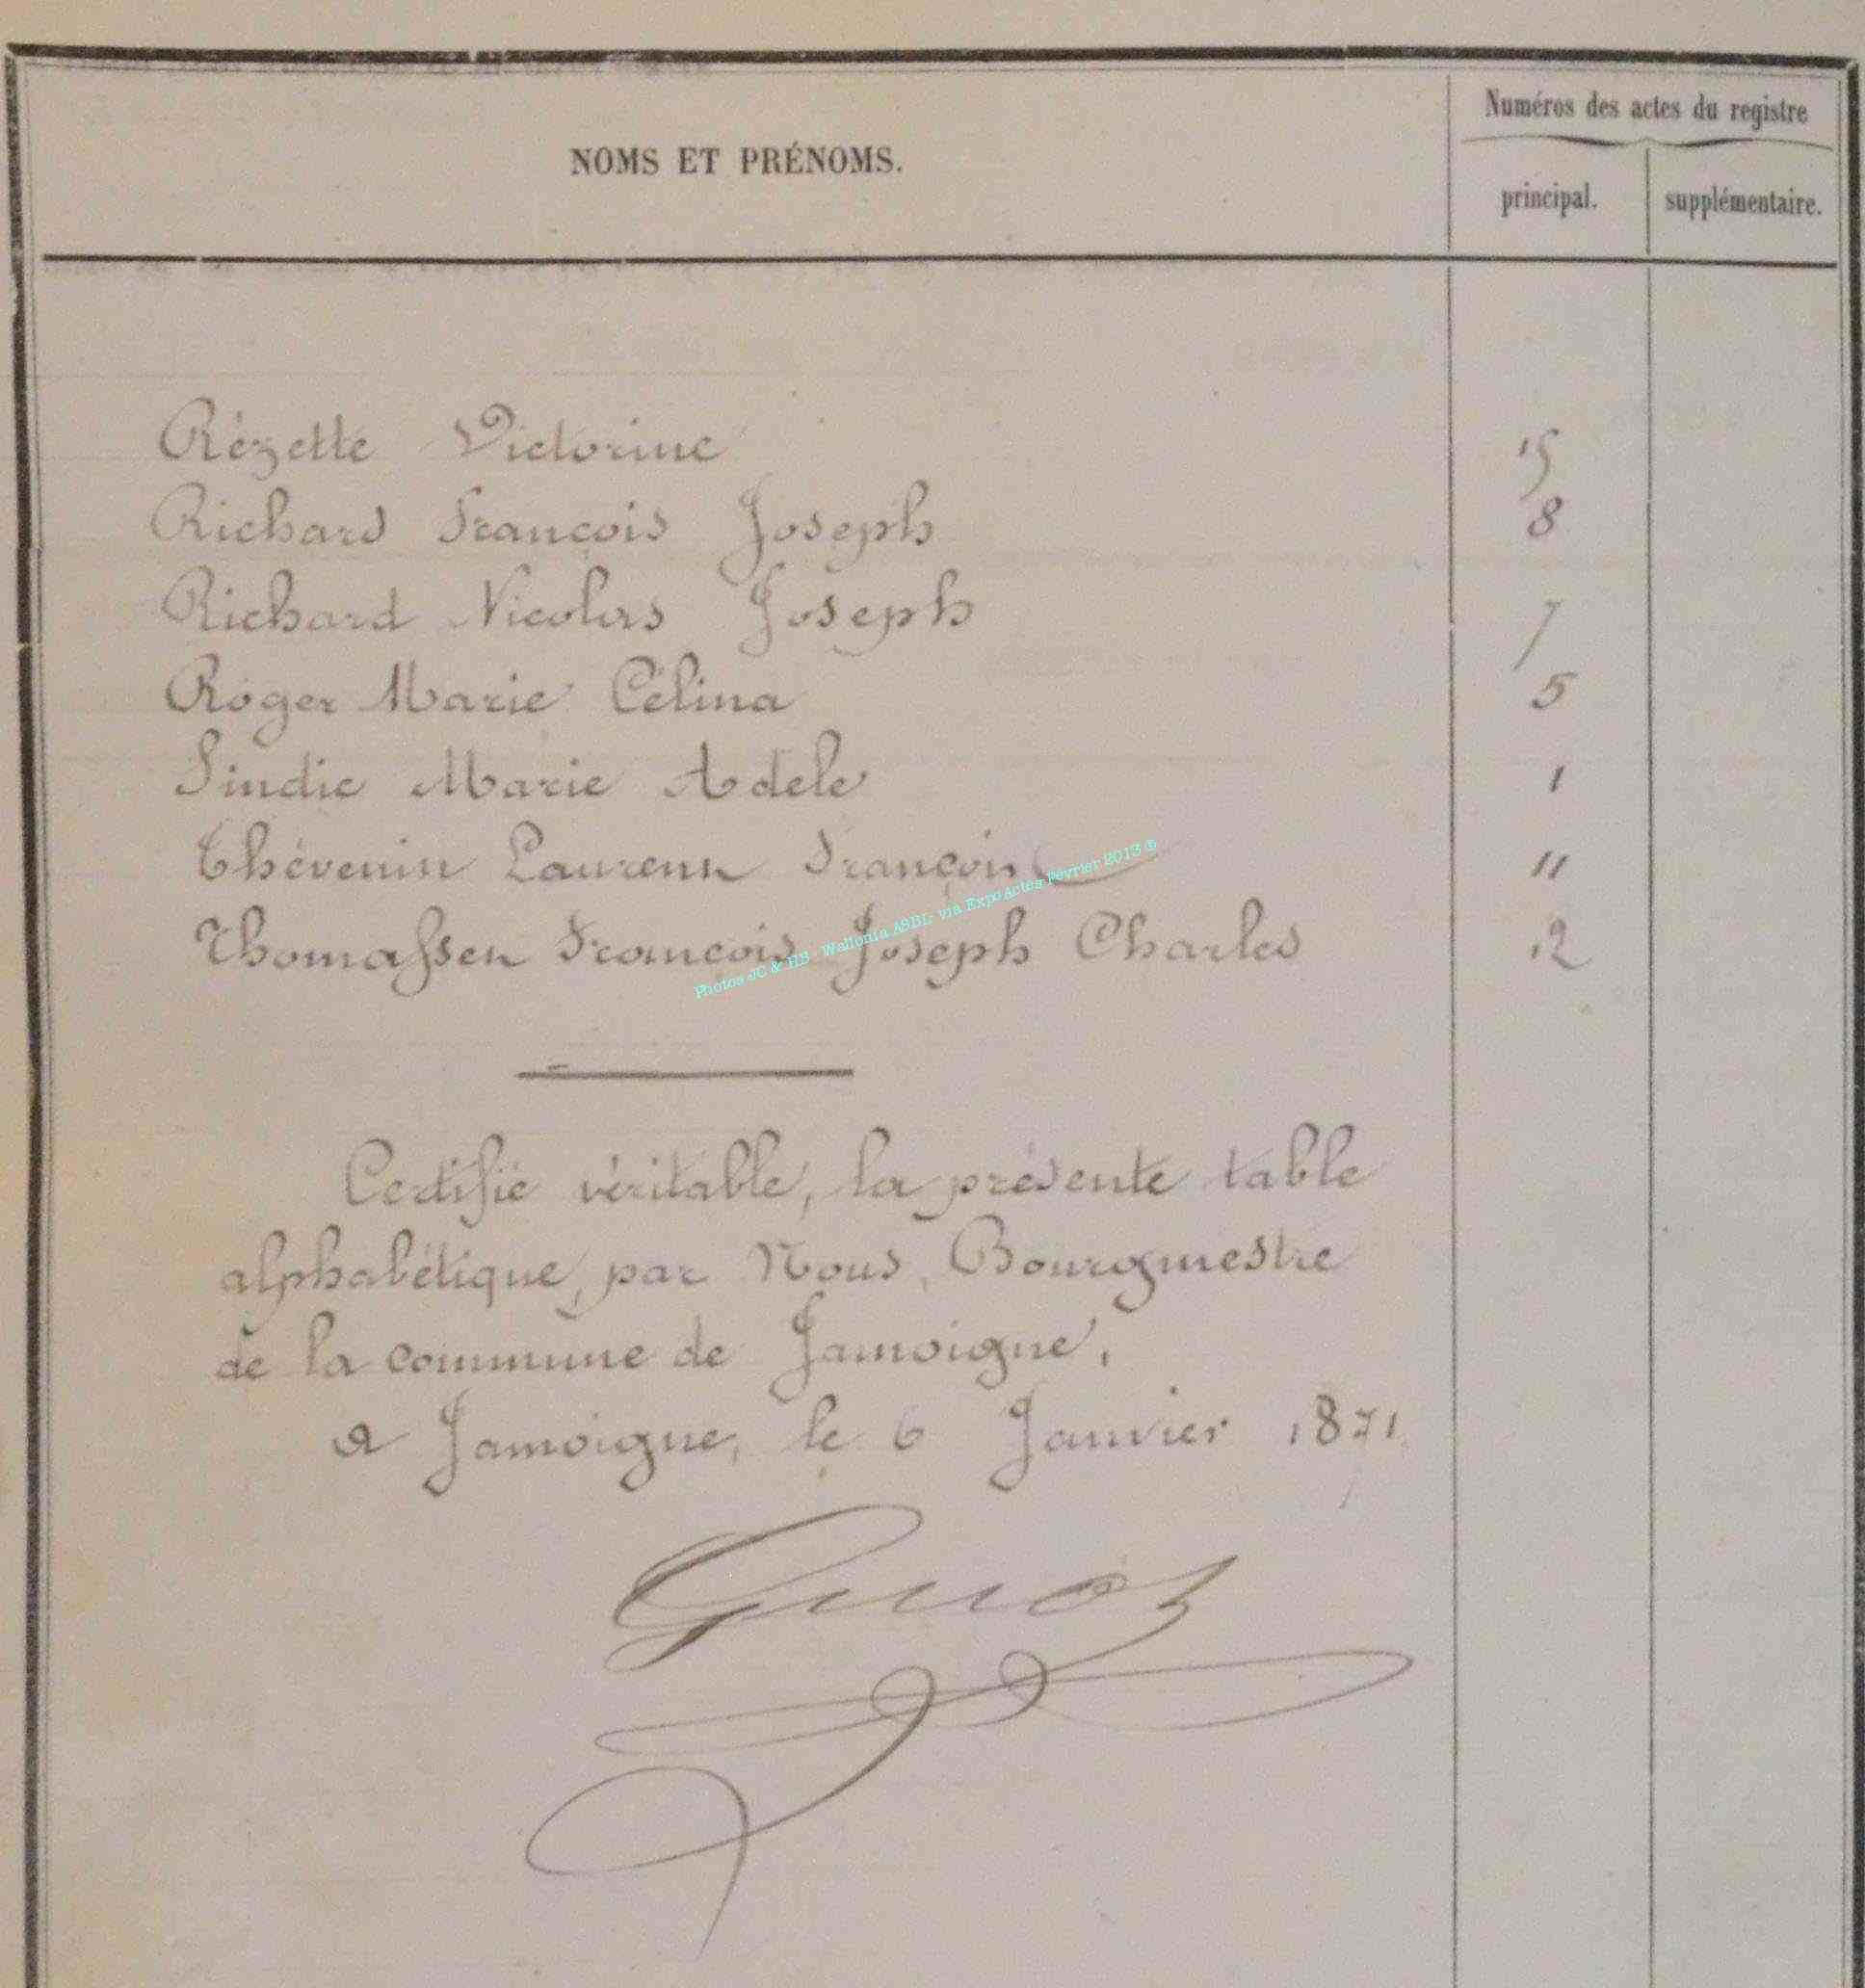 Numéros des actes du registre
NOMS ET PRÉNOMS.
principal. supplémentaire.
Rézette Victorine 15
Richard François Joseph 8
Richard Nicolas Joseph 7
Roger Marie Célina 5
Sindic Marie Adele 1
Thévenin Laurent François 11
Thomassen François Joseph Charles 12
Photos JC & HB Wallonia ASBL via ExpoActes Février 2013 ®
Certifié véritable, la présente table
alphabétique, par Nous, Bourgmestre
de la commune de Jamoigne,
a Jamoigne, le 6 Janvier 1871